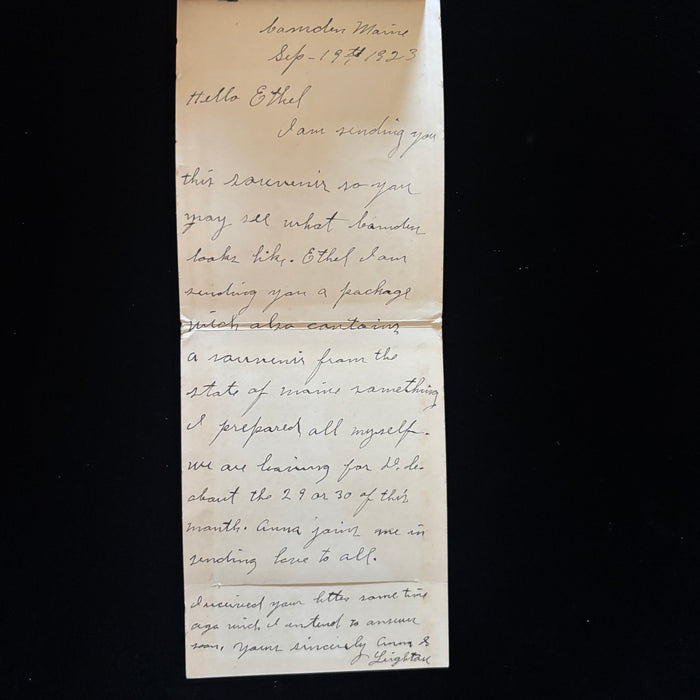 Camden Maine
Sep-19th 1923
Hello Ethel
I am sending you
this souvenir so you
may see what Camden
looks like. Ethel I am
sending you a package
wich also contains
a souvenir from the
state of maine something
I prepared all myself.
we are leaving for D.C.
about the 29 or 30 of this
month. Anna joins me in
sending love to all.
I received your letter some time
ago wich I intend to answer
soon, yours sincerely Anna &
Leighton